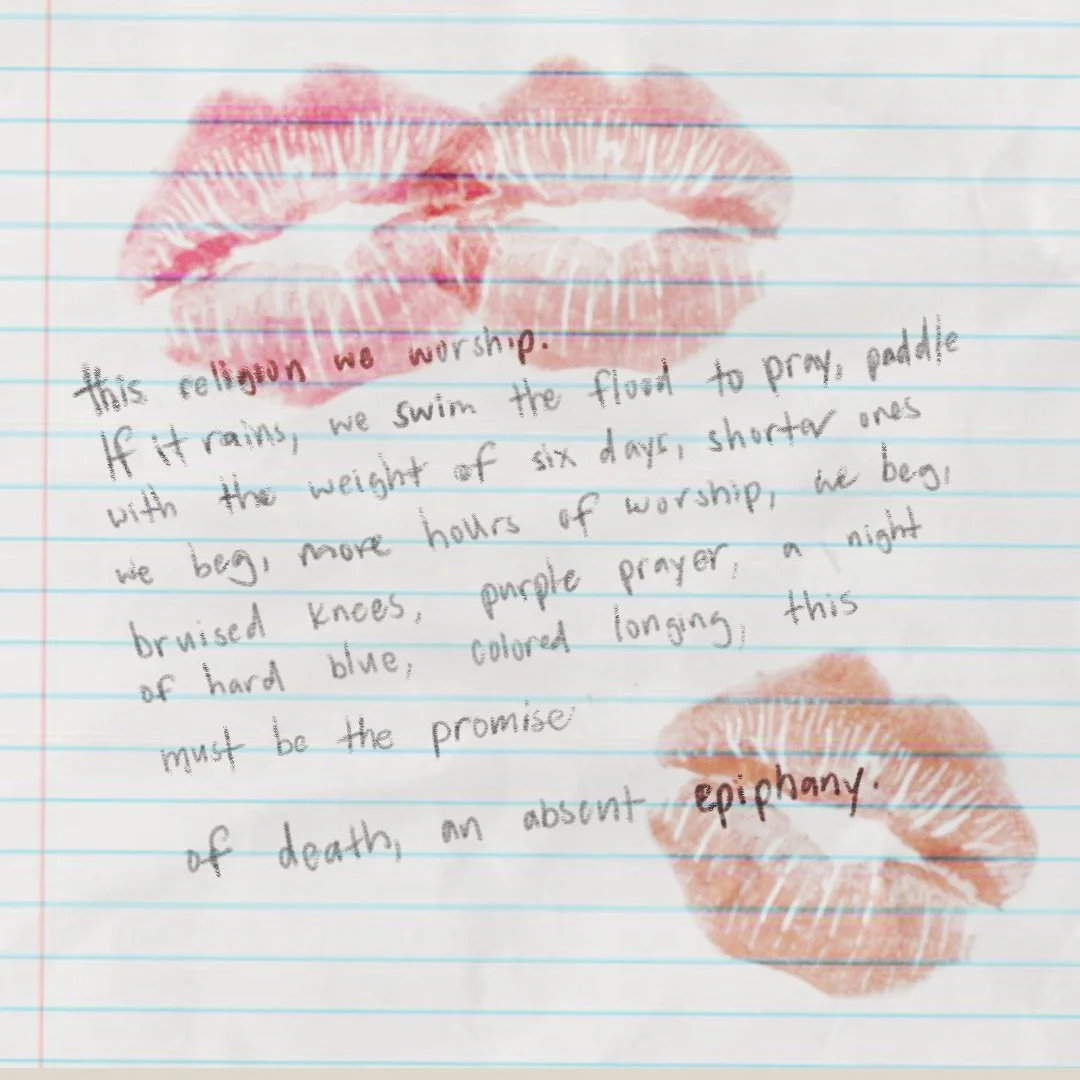 this religion we worship.
If it rains, we swim the flood to pray, paddle
with the weight of six days, shorter ones
we beg, more hours of worship, we beg,
bruised knees, purple prayer, a night
of hard blue, colored longing, this
must be the promise
of death, an absent epiphany.